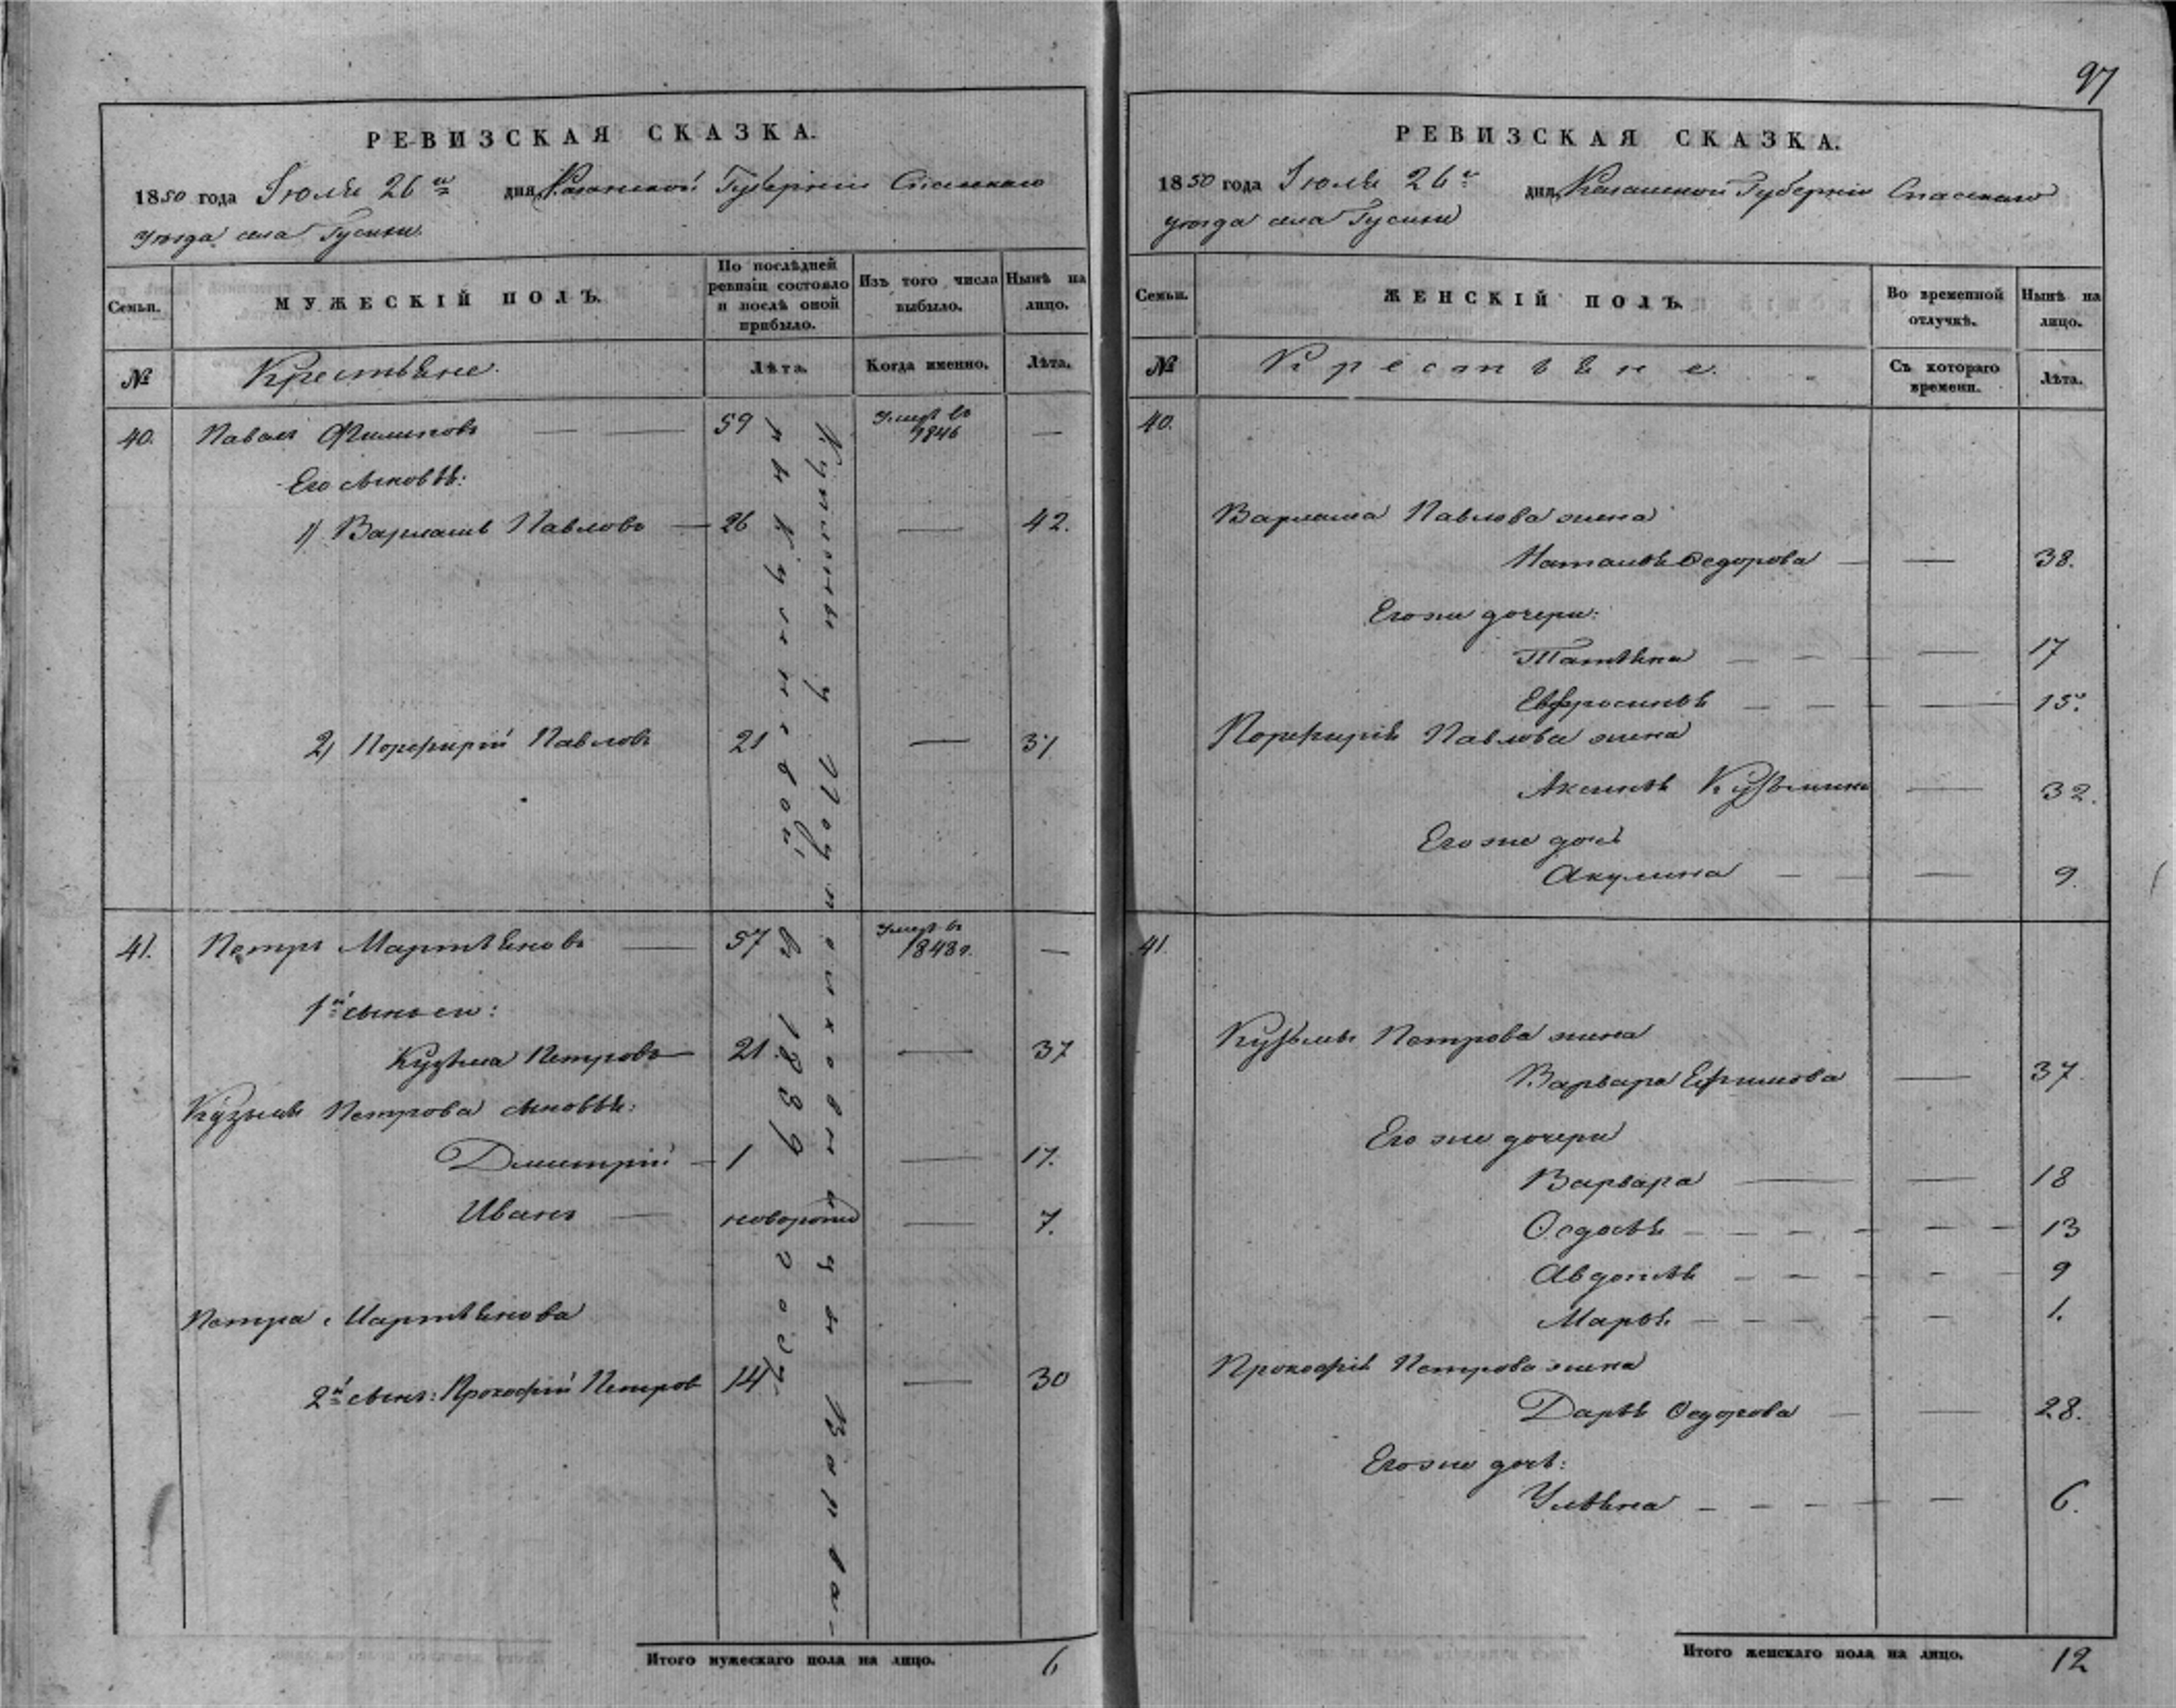 97
РЕВИЗСКАЯ СКАЗКА.
1850 года Іюля 26го дня, Казанской Губерніи Спаскаго
уѣзда села Гусихи.
Семьи.
МУЖЕСКІЙ ПОЛЪ.
По послѣдней ревизіи состояло и послѣ оной прибыло.
Изъ того числа выбыло.
Нынѣ на лицо.
№
Крестьяне.
Лѣта.
Когда именно.
Лѣта.
40. Павелъ Филиповъ — — 59 Умеръ въ 1846 —
Его сыновья:
1) Варламъ Павловъ — 26 — 42.
2) Порфирій Павловъ 21 — 37
41. Петръ Мартьяновъ — 57 Умеръ въ 1848 г. —
1й сынъ ею:
Кузьма Петровъ — 21 — 37
Кузьмы Петрова сыновья:
Дмитрій — 1 — 17.
Иванъ — новорожд — 7.
Петра Мартьянова
2й сынъ: Прокофій Петровъ 14 — 30
Куплены у Полковницы
въ 1839 году
Итого мужескаго пола на лицо. 6
РЕВИЗСКАЯ СКАЗКА.
1850 года Іюля 26го дня, Казанской Губерніи Спаскаго
уѣзда села Гусихи
Семьи.
ЖЕНСКІЙ ПОЛЪ.
Во временной отлучкѣ.
Нынѣ на лицо.
№
Крестьяне.
Съ котораго времени.
Лѣта.
40.
Варлама Павлова жена
Наталья Федорова — — 38.
Его же дочери:
Татьяна — — — 17
Евфросинья — — — 15.
Порфирія Павлова жена
Аксинья Кузьмина — 32.
Его же дочь
Акулина — — — 9.
41.
Кузьмы Петрова жена
Варвара Ефимова — 37.
Его же дочери
Варвара — — 18
Федосья — — — — — 13
Авдотья — — — — 9
Марья — — — — 1.
Прокофія Петрова жена
Дарья Федорова — — 28.
Его же дочь:
Ульяна — — — — 6.
Итого женскаго пола на лицо. 12